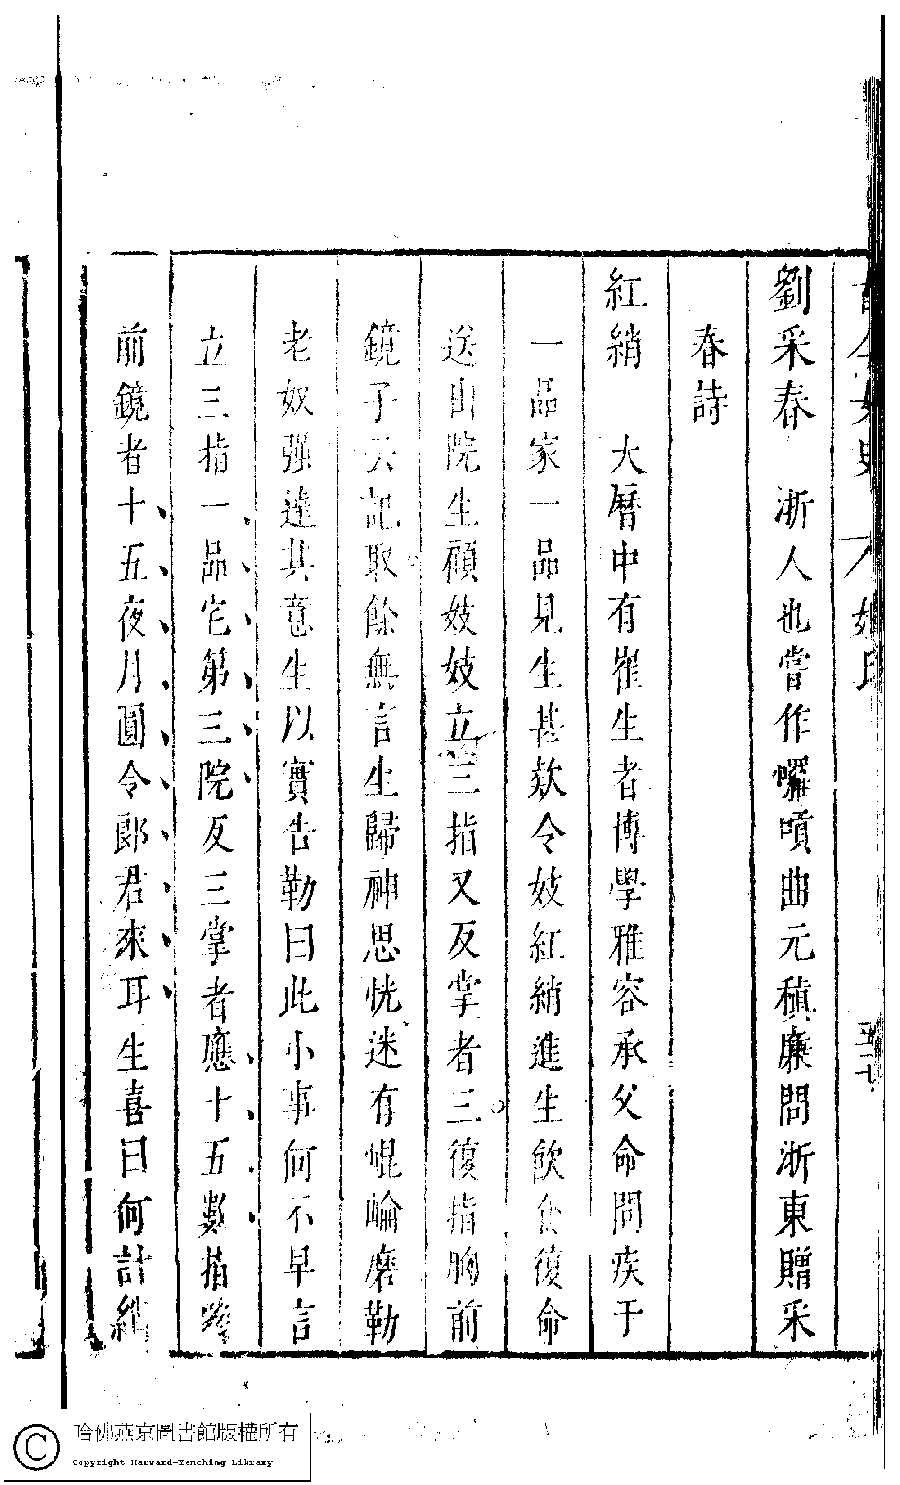 劉采春 浙人也嘗作囉嗊曲元稹廉問浙東贈采
春詩
紅綃 大曆中有崔生者博學雅容承父命問疾于
一品家一品見生甚欵令妓紅綃進生飲食復命
送出院生顧妓妓立三指又反掌者三復指胸前
鏡子云記取餘無言生歸神思恍迷有崐崘磨勒
老奴强達其意生以實告勒曰此小事何不早言
立三指一品宅第三院反三掌者應十五數指胸
前鏡者十五夜月圓令郎君來耳生喜曰何計
哈佛燕京圖書館版權所有
Copyright Harvard-Yenching Library